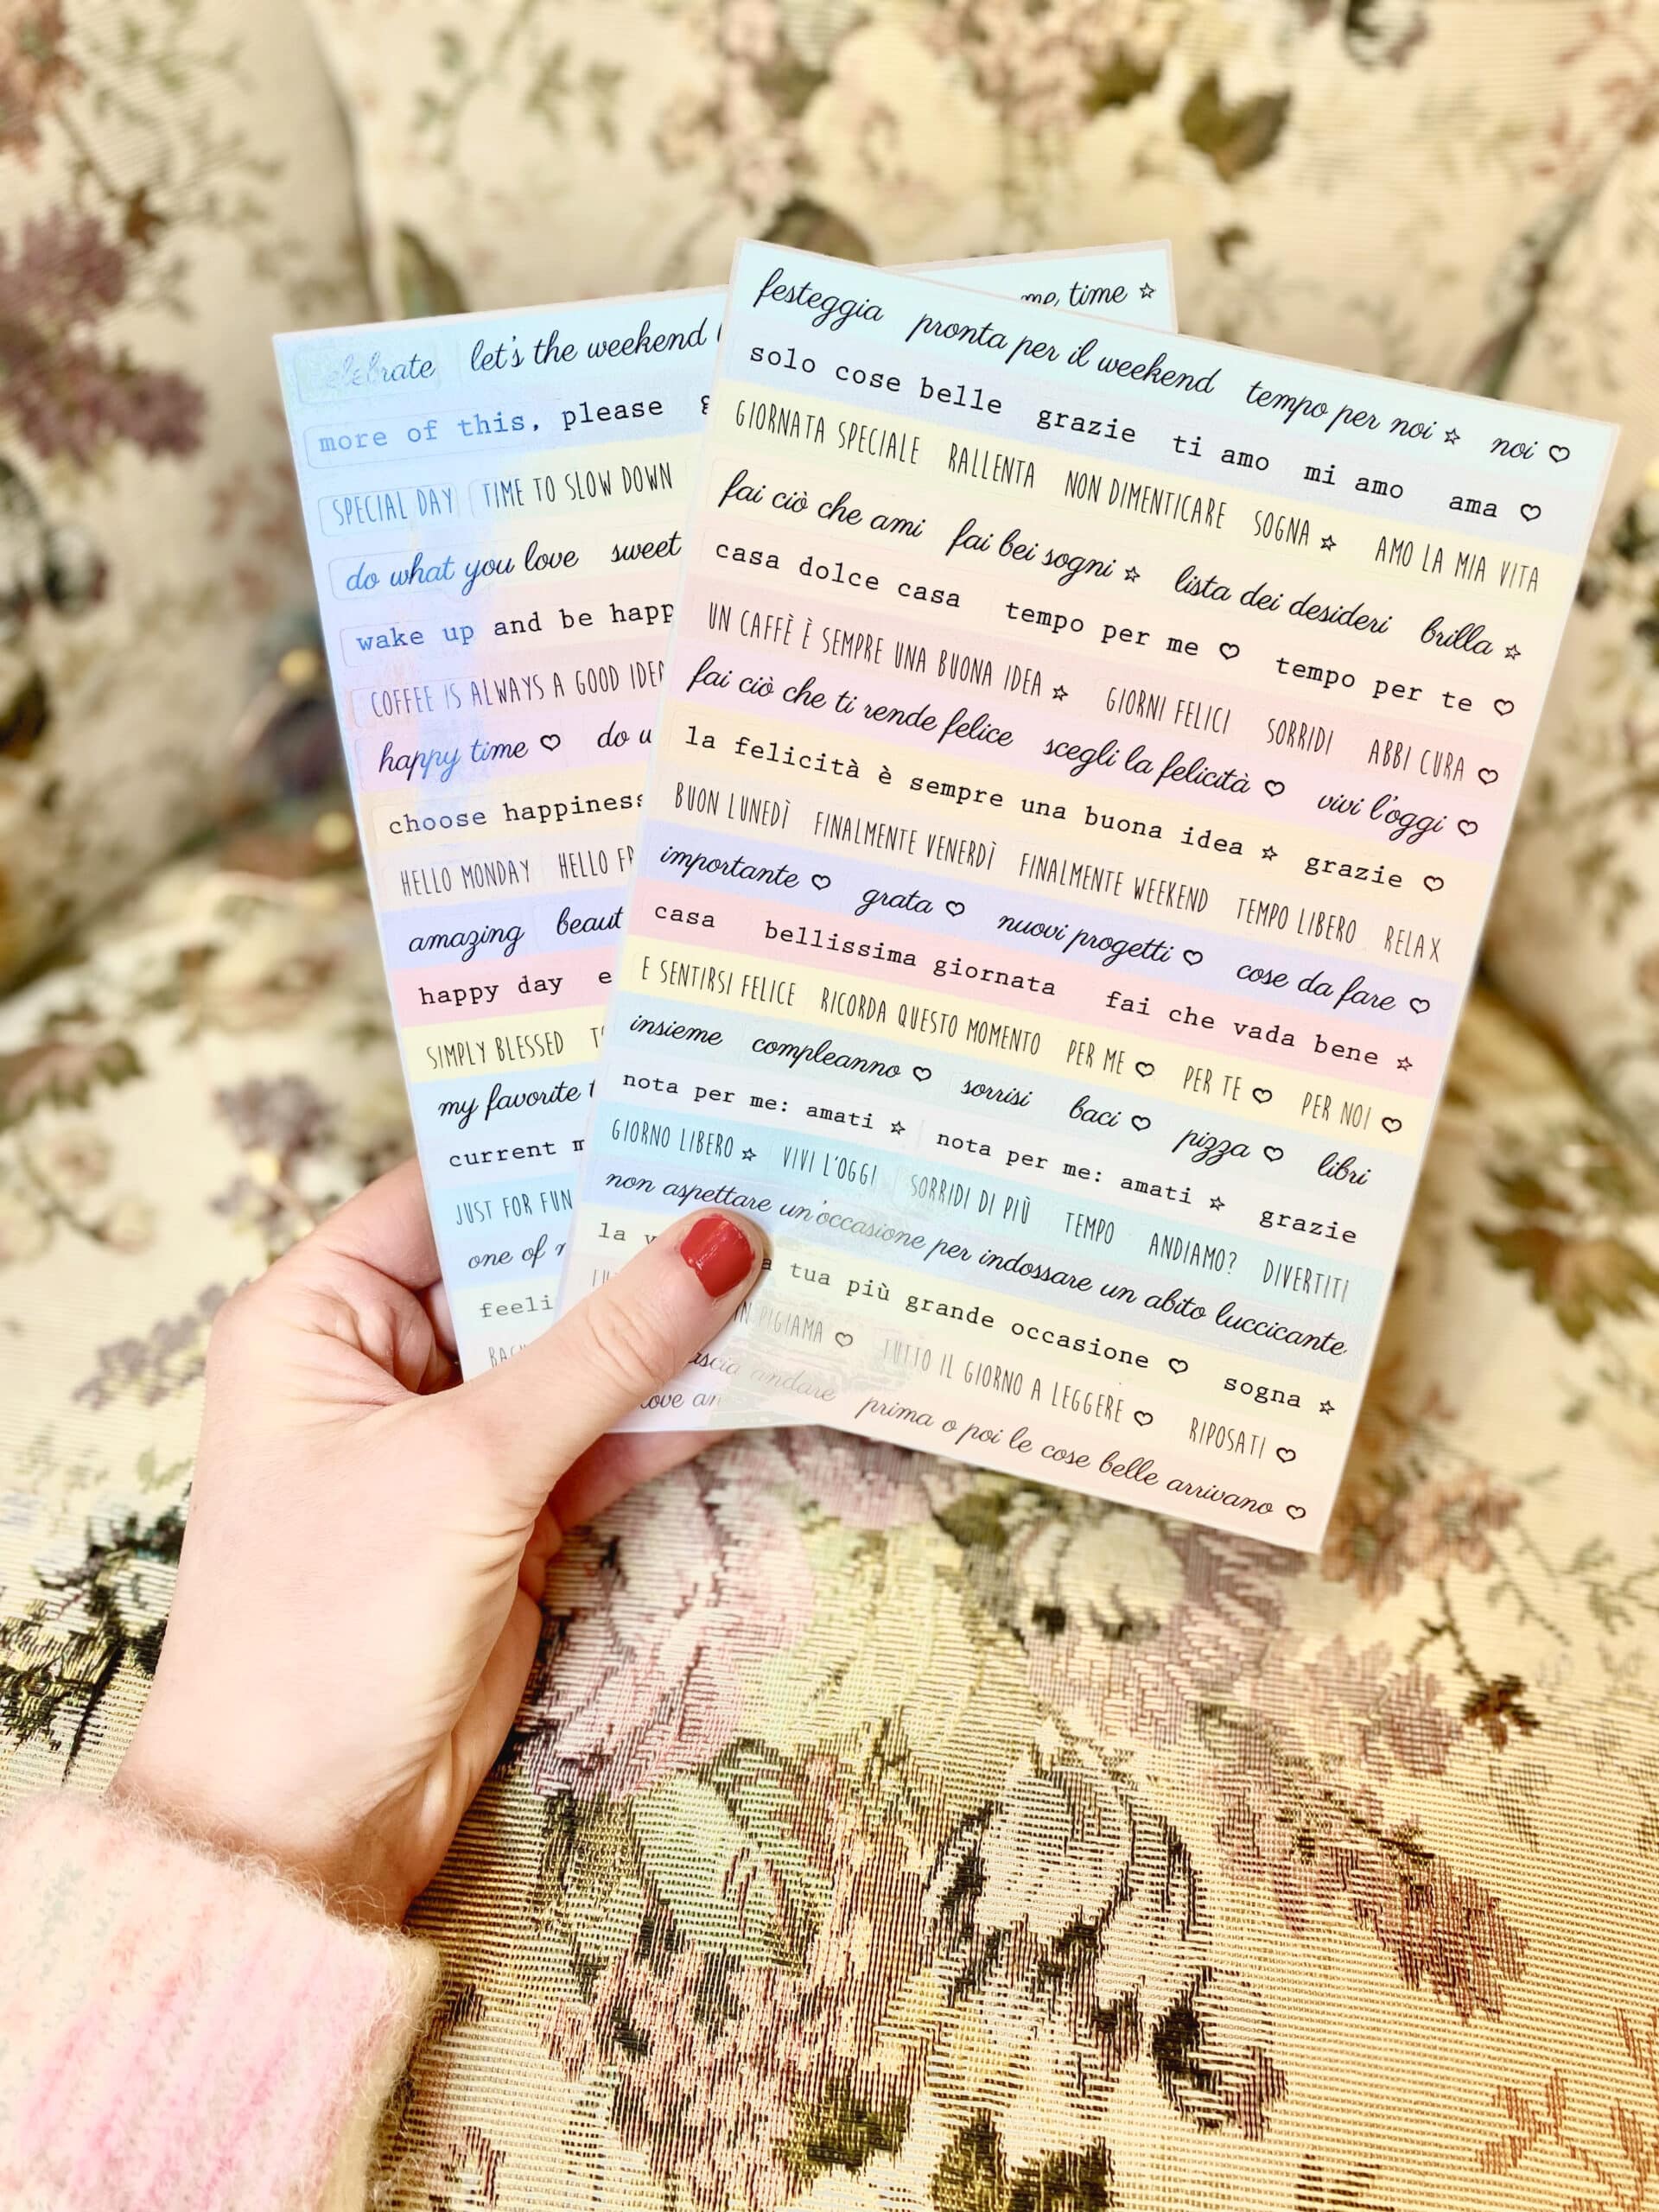 let's the weekend
more of this, please
SPECIAL DAY TIME TO SLOW DOWN
do what you love sweet
wake up and be happ
COFFEE IS ALWAYS A GOOD IDEA
happy time ♡ do
choose happiness
HELLO MONDAY HELLO FR
amazing beaut
happy day e
SIMPLY BLESSED
my favorite t
current m
JUST FOR FUN
one of
feeli
time ☆
festeggia pronta per il weekend tempo per noi ☆ noi ♡
solo cose belle grazie ti amo mi amo ama ♡
GIORNATA SPECIALE RALLENTA NON DIMENTICARE SOGNA ☆ AMO LA MIA VITA
fai ciò che ami fai bei sogni ☆ lista dei desideri brilla ☆
casa dolce casa tempo per me ♡ tempo per te ♡
UN CAFFÈ È SEMPRE UNA BUONA IDEA ☆ GIORNI FELICI SORRIDI ABBI CURA ♡
fai ciò che ti rende felice scegli la felicità ♡ vivi l'oggi ♡
la felicità è sempre una buona idea ☆ grazie ♡
BUON LUNEDÌ FINALMENTE VENERDÌ FINALMENTE WEEKEND TEMPO LIBERO RELAX
importante ♡ grata ♡ nuovi progetti ♡ cose da fare ♡
casa bellissima giornata fai che vada bene ☆
E SENTIRSI FELICE RICORDA QUESTO MOMENTO PER ME ♡ PER TE ♡ PER NOI ♡
insieme compleanno ♡ sorrisi baci ♡ pizza ♡ libri
nota per me: amati ☆ nota per me: amati ☆ grazie
GIORNO LIBERO ☆ VIVI L'OGGI SORRIDI DI PIÙ TEMPO ANDIAMO? DIVERTITI
non aspettare un'occasione per indossare un abito luccicante
la tua più grande occasione ♡ sogna ☆
IN PIGIAMA ♡ TUTTO IL GIORNO A LEGGERE ♡ RIPOSATI ♡
andare prima o poi le cose belle arrivano ♡